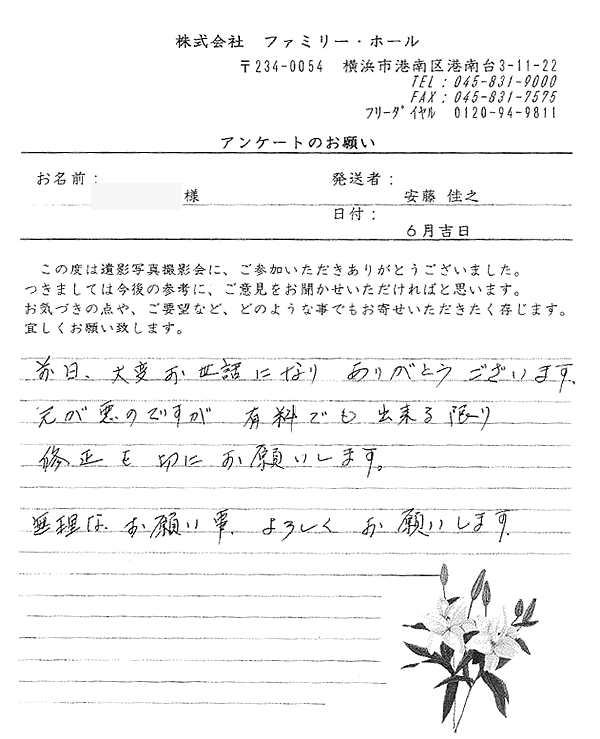 株式会社　ファミリー・ホール
〒234-0054　横浜市港南区港南台3-11-22
TEL：045-831-9000
FAX：045-831-7575
フリーダイヤル　0120-94-9811
アンケートのお願い
お名前：
様
発送者：
安藤 佳之
日付：
6月吉日
この度は遺影写真撮影会に、ご参加いただきありがとうございました。
つきましては今後の参考に、ご意見をお聞かせいただければと思います。
お気づきの点や、ご要望など、どのような事でもお寄せいただきたく存じます。
宜しくお願い致します。
前日、大変お世話になり ありがとうございます、
元が悪のですが 有料でも 出来る限り
修正を 切に お願いします。
無理な、お願い事、よろしく お願いします、